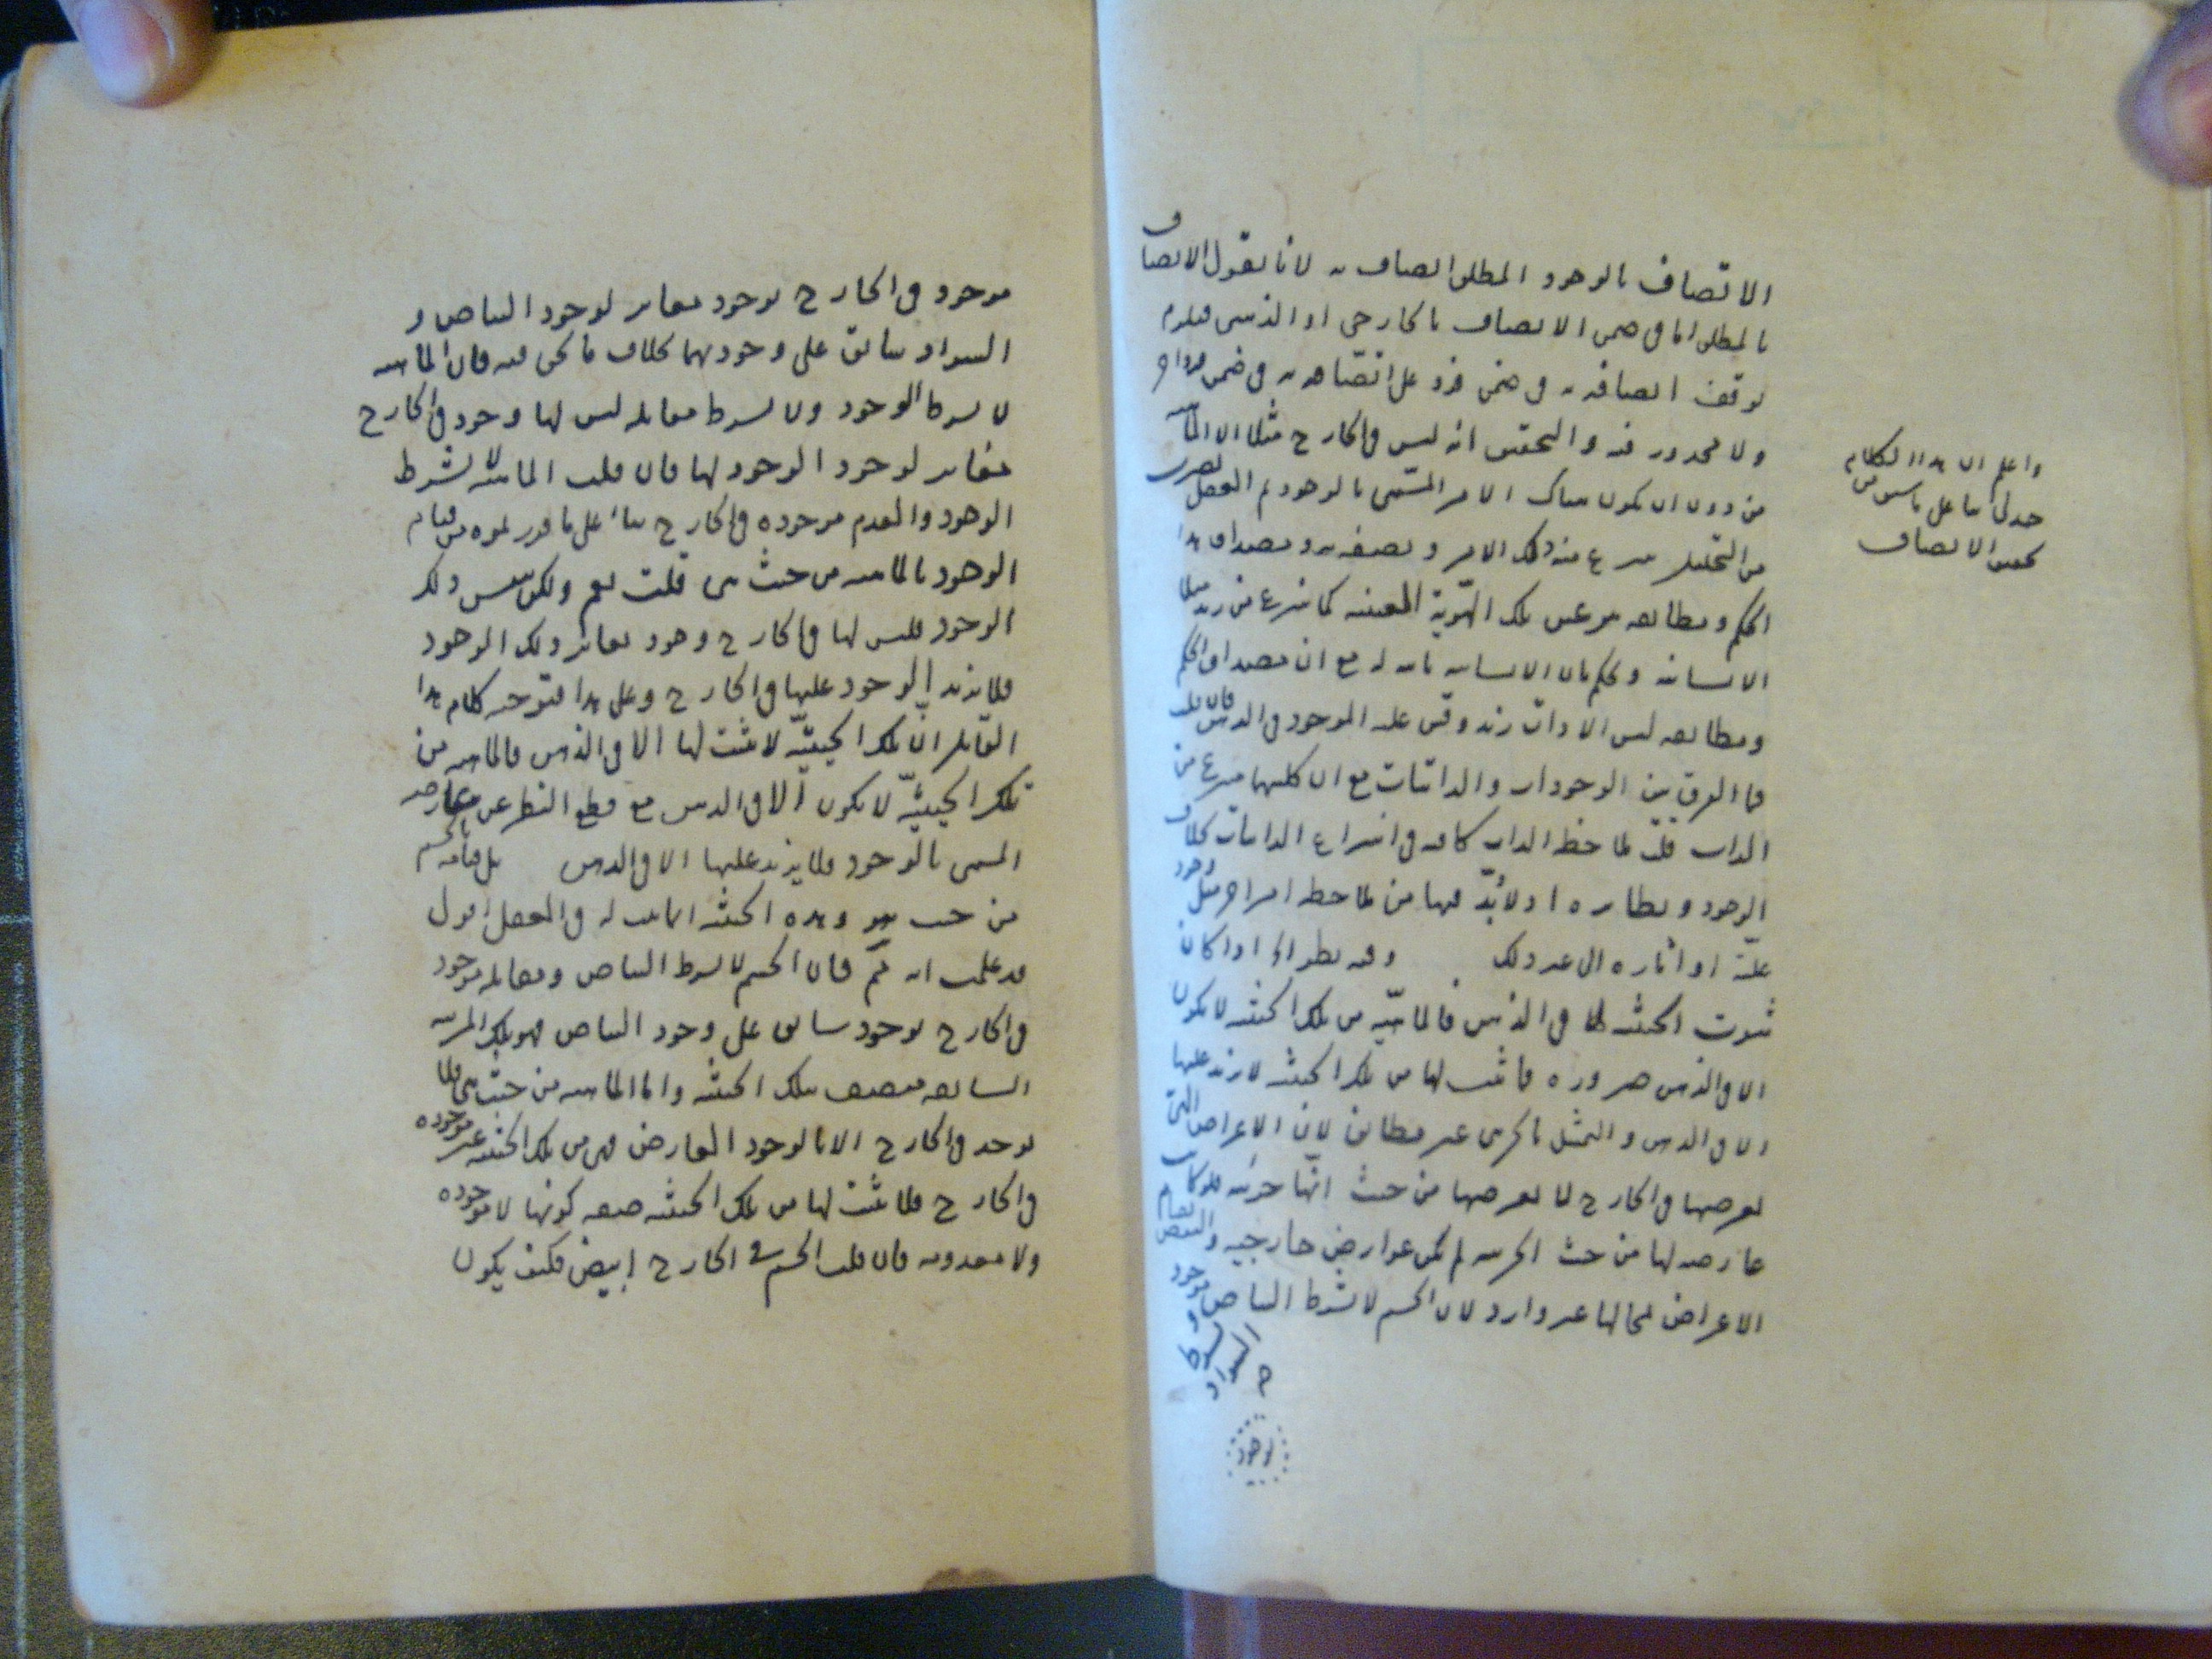 الاتصاف بالوجود المطلق اتصاف به لانا نقول الاتصاف
بالمطلق اما في ضمن الاتصاف بالخارجي او الذهني فيلزم
توقف اتصافه به في ضمن فرد على اتصافه به في ضمن فرد اخر
ولا محذور فيه والتحقيق انه ليس في الخارج مثلا الا الماهية
من دون ان يكون هناك الامر المسمى بالوجود ثم العقل بضرب
من التحليل ينتزع منه ذلك الامر ويصفه به ومصداق هذا
الحكم ومطابقه هو عين تلك الهوية المعينة كما ينتزع من زيد مثلا
الانسانية ويحكم بان الانسانية ثابتة له مع ان مصداق الحكم
ومطابقه ليس الا ذات زيد وقس عليه الموجود في الذهن فان قلت
فما الفرق بين الوجودات والذاتيات مع ان كليهما منتزع من
الذات قلت ملاحظة الذات كافية في انتزاع الذاتيات بخلاف
الوجود ونظائره اذ لا بد فيها من ملاحظة امر اخر مثل وجود
علته او اثاره الى غير ذلك وفيه نظر اذ اذا كان
ثبوت الحيثية لها في الذهن فالماهية من تلك الحيثية لا يكون
الا في الذهن ضرورة فما ثبت لها من تلك الحيثية لا يزيد عليها
الا في الذهن والتمثيل بالجزئي غير مطابق لان الاعراض التي
تعرضها في الخارج لا تعرضها من حيث انها جزئية فلو كانت
عارضة لها من حيث الجزئية لم تكن عوارض خارجية والنقض بقيام
الاعراض لمحالها غير وارد لان الجسم لا بشرط البياض موجود و
لا بشرط السواد
لوجود
واعلم ان هذا الكلام
جدلي بناء على تاسيس من
تحقيق الاتصاف
موجود في الخارج بوجود مغاير لوجود البياض و
السواد سابق على وجودهما بخلاف ما نحن فيه فان الماهية
لا بشرط الوجود ولا بشرط مقابله ليس لها وجود في الخارج
مغاير لوجود الوجود لها فان قلت الماهية لا بشرط
الوجود والعدم موجودة في الخارج بناء على ما قرر نموه من قيام
الوجود بالماهية من حيث هي قلت نعم ولكن بنفس ذلك
الوجود فليس لها في الخارج وجود يغاير ذلك الوجود
فلا يزيد الوجود عليها في الخارج وعلى هذا فتوجه كلام هذا
القائل ان تلك الحيثية لا تثبت لها الا في الذهن فالماهية من
تلك الحيثية لا يكون الا في الذهن مع قطع النظر عن عارضه
المسمى بالوجود فلا يزيد عليها الا في الذهن بل قيامه بالجسم
من حيث هو وهذه الحيثية انما ثبت له في العقل اقول
قد علمت انه ثم فان الجسم لا بشرط البياض ومقابله موجود
في الخارج بوجود سابق على وجود البياض فهو بتلك المرتبة
السابقة متصف بتلك الحيثية واما الماهية من حيث هي فلا
توجد في الخارج الا بالوجود العارض فهي من تلك الحيثية غير موجودة
في الخارج فلا تثبت لها من تلك الحيثية صفة كونها لا موجودة
ولا معدومة فان قلت الجسم في الخارج ابيض فكيف يكون